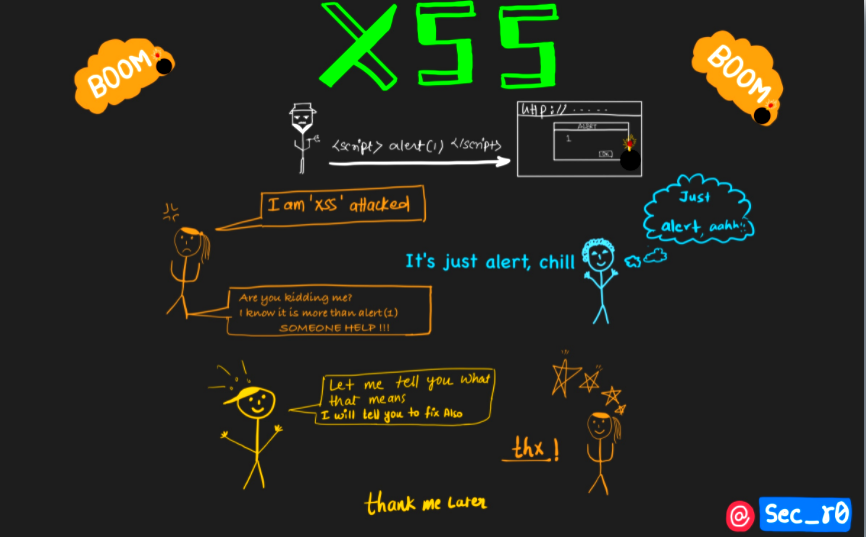 XSS
BOOM
BOOM
http://.....
ALERT
1
[OK]
<script> alert(1) </script>
I am 'XSS' attacked
Just
alert, aahh!!
It's just alert, chill
Are you kidding me?
I know it is more than alert(1)
SOMEONE HELP !!!
Let me tell you what
that means
I will tell you to fix Also
thx!
thank me Later
@ Sec_r0